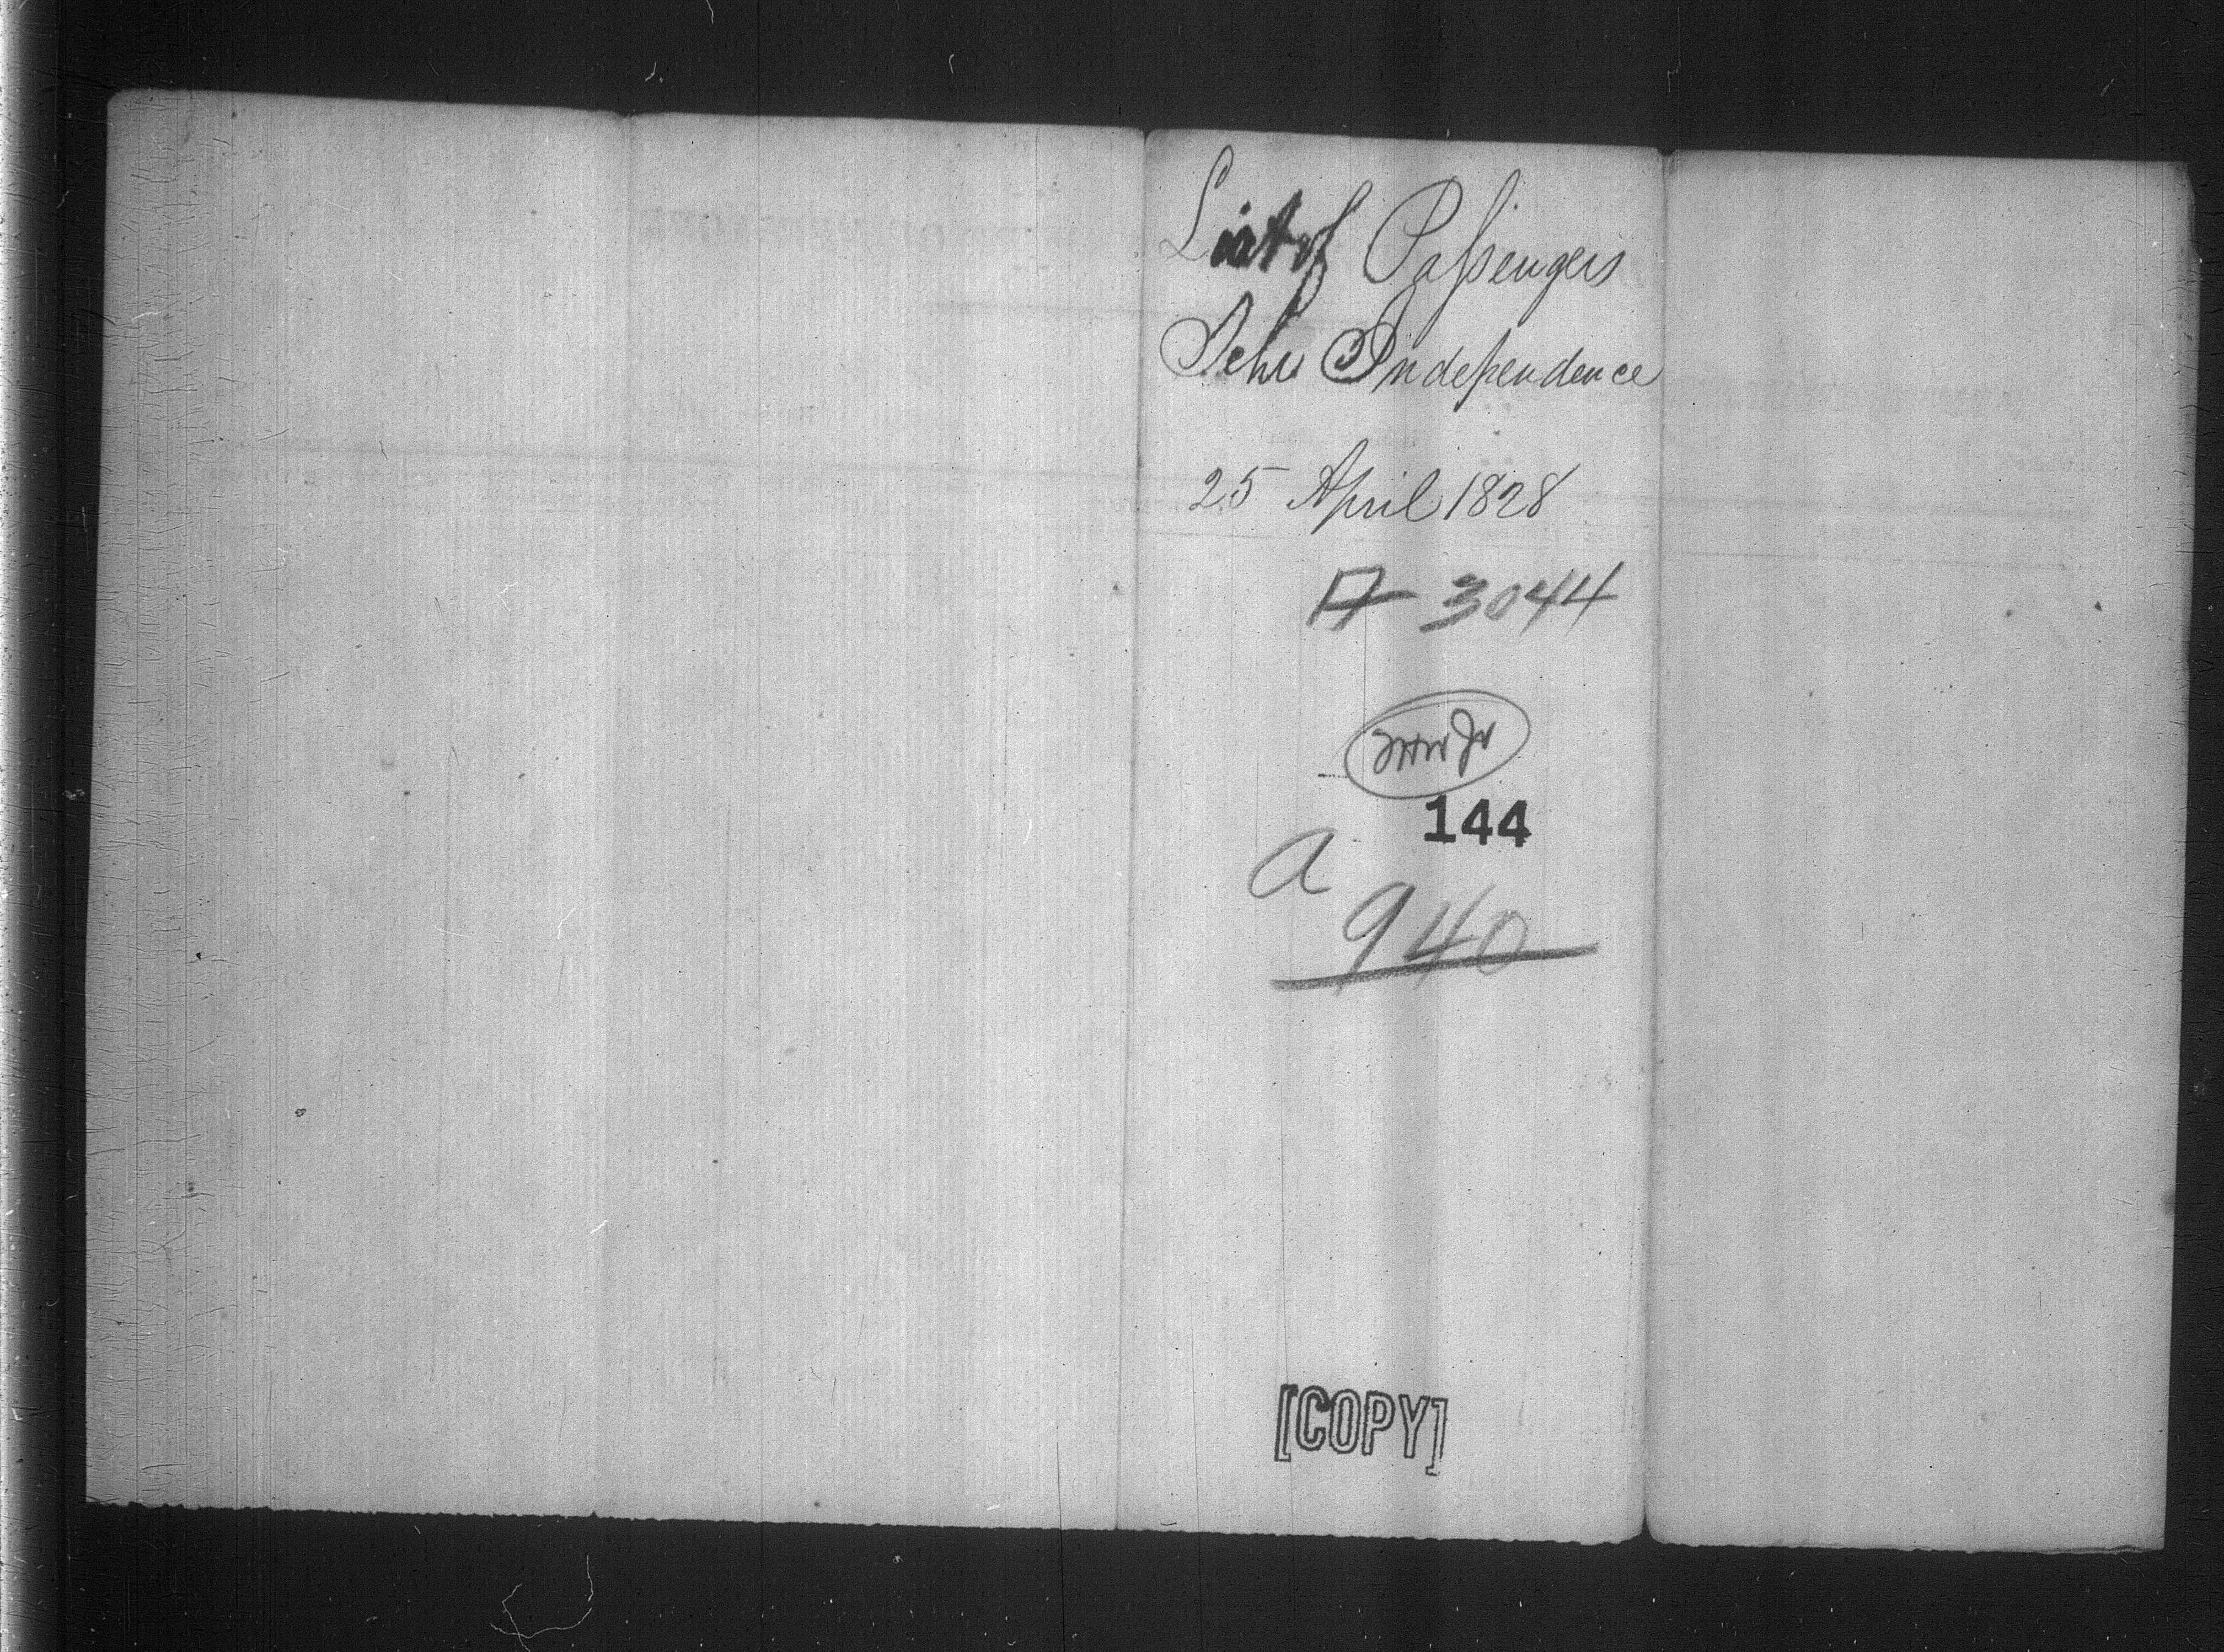 List of Passengers
Schr Independence
25 April 1828
A 3044
144
a
940
[COPY]